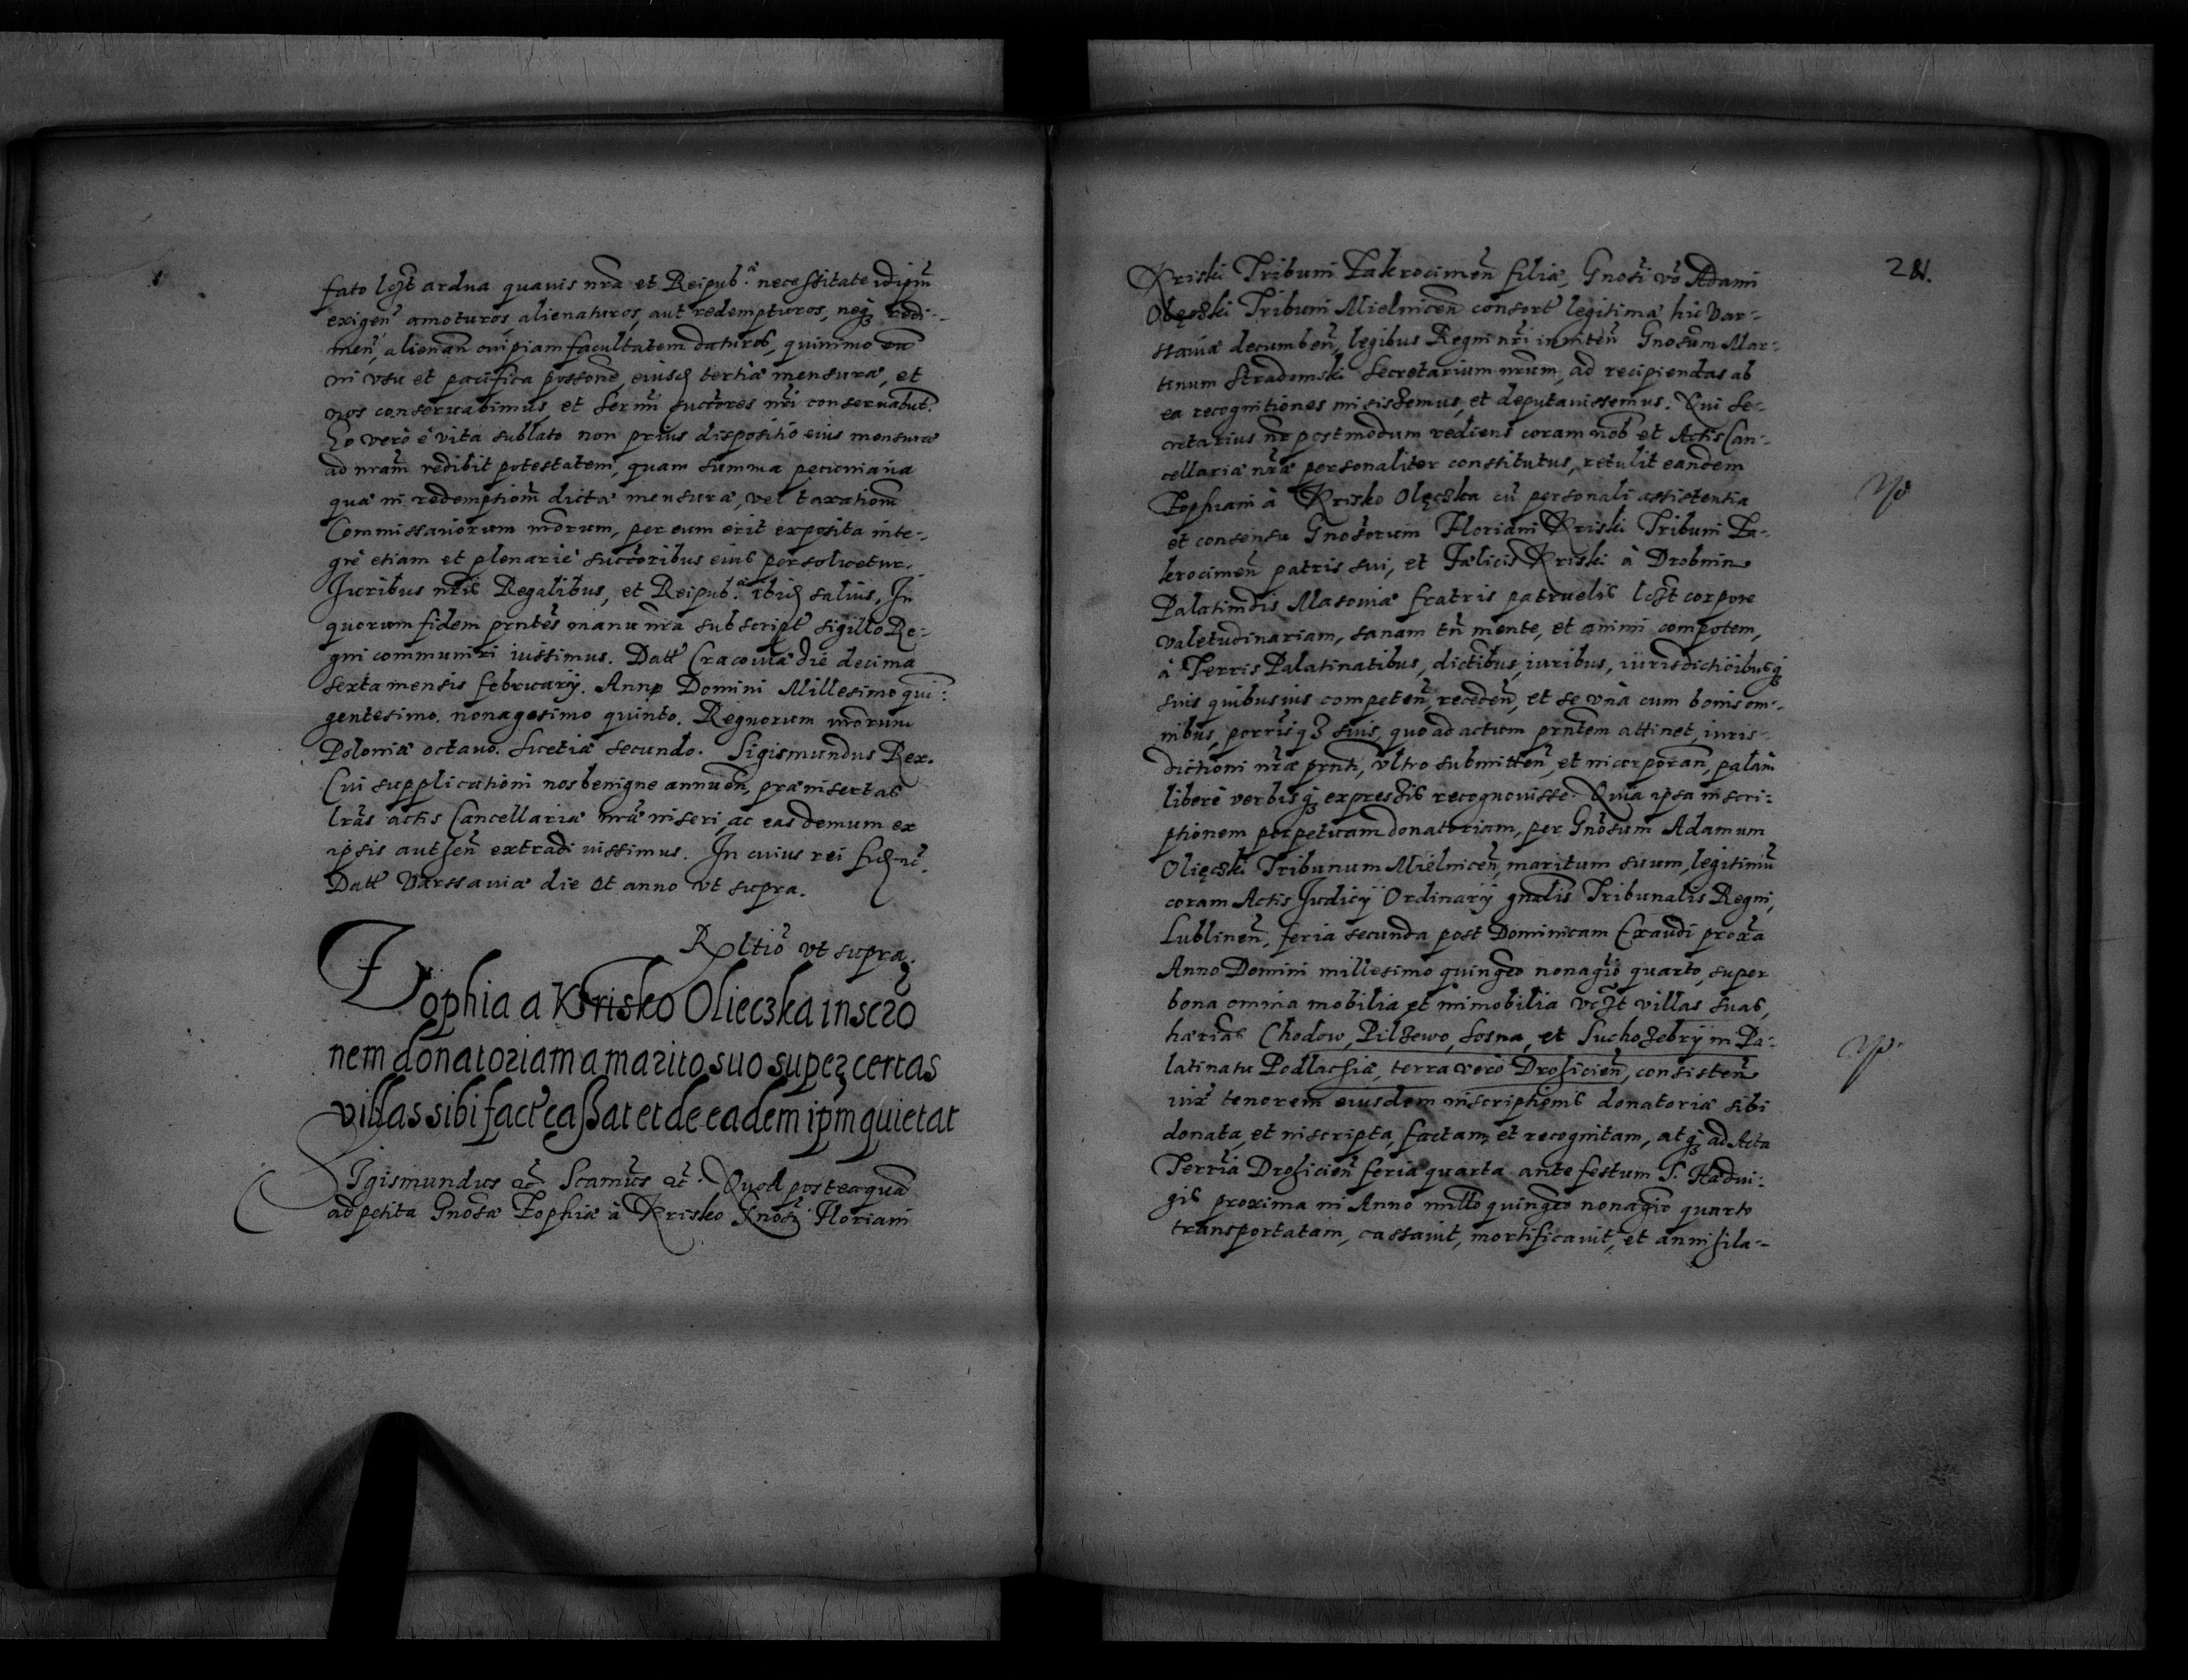 fato lct̃ ardua quauis nrã et Reipub:ᵃ necessitate idipsũ
exigeñ amoturos, alienaturos, aut redempturos, neq₃ redi-
meñ, alienañ cuipiam facultatem daturos, quinimmo eũ
in vsu et pacifica possonẽ, eiusd tertiæ mensuræ, et
nos conseruabimus, et Sermi succores nri conseruabut.
Eo verò è vita sublato non prius dispositio eius mensuræ
ad nram redibit potestatem, quam summa pecuniaria
quæ in redemptionẽ dictæ mensuræ, vel taxationẽ
Commissariorum nrorum, per eum erit exposita inte-
grè etiam et plenariè succoribus eius persoluetur.
Iuribus nris Regalibus, et Reipub:ᵃ ibid saluis, In
quorum fidem prntes manu nra subscript̃ sigillo Re-
gni communiri iussimus. Datt Cracouiæ die decima
sexta mensis februarij. Anno Domini Millesimo quin:
gentesimo. nonagesimo quinto. Regnorum nrorum
Poloniæ octauo. Suetiæ secundo. Sigismundus Rex.
Cui supplicationi nos benigne annueñ, præinsertas
lras actis Cancellariæ nræ inseri, ac easdemum ex
ipsis autheñ extradi iussimus. In cuius rei fid ec̃.
Datt Varssauiæ die et anno vt supra.
Rltio vt supra.
Zophia a Krisko Olieczka inscro
nem donatoriam a marito suo super certas
villas sibi fact̃ caßat et de eadem ipm quietat
Sigismundus ec̃ Scamus ec̃. Quod posteaquã
ad petita Gnosæ Zophiæ à Krisko Gnosi Floriani
281.
Kriski Tribuni Zakrocimeñ filiæ, Gnosi vo Adami
Olęczki Tribuni Mielniceñ consort̃ legitimæ hic Var-
sauiæ decumbeñ, legibus Regni nri inniteñ Gnosum Mar-
tinum Stradomski Secretarium nrum, ad recipiendas ab
ea recognitiones misissemus, et deputauissemus. Qui Se-
cretarius nr postmodum rediens coram nob et Actis Can-
cellariæ nræ personaliter constitutus, retulit eandem
Zophiam à Krisko Olęczka cũ personali assistentia
et consensu Gnosorum Floriani Kriski Tribuni Za-
krocimeñ patris sui, et Fælicis Kriski à Drobnin
Palatinidis Masouiæ fratris patruelis lct̃ corpore
valetudinariam, sanam tñ mente, et animi compotem,
à Terris Palatinatibus, dictibus, iuribus, iurisdictioibusq₃
suis quibusuis competeñ, recedeñ, et se vnà cum bonis om-
nibus, porrisq₃ suis, quo ad actum prntem attinet, iuris-
dictioni nræ prnti, vltro submitteñ, et incorporañ, palàm
liberè verbisq₃ expressis recognouisse. Quia ipsa inscri-
ptionem perpetuam donatoriam, per Gnosum Adamum
Olięczki Tribunum Mielniceñ, maritum suum, legitimũ
coram Actis Iudicij Ordinarij gnalis Tribunalis Regni,
Lublineñ, feria secunda post Dominicam Exaudi proxã
Anno Domini millesimo quingeo nonagio quarto, super
bona omnia mobilia et immobilia vct̃ villas suas,
hærias Chodow, Pilzewo, Sosna, et Suchozebry in Pa-
latinatu Podlachiæ, terra verò Drohicieñ, consisteñ
iux̃ tenorem eiusdem inscriptionis donatoriæ sibi
donata, et inscripta, factam, et recognitam, atq₃ ad Acta
Terria Drohicieñ feria quarta ante festum S. Hædui-
gis proxima in Anno millo quingeo nonagio quarto
transportatam, cassauit, mortificauit, et annihila-